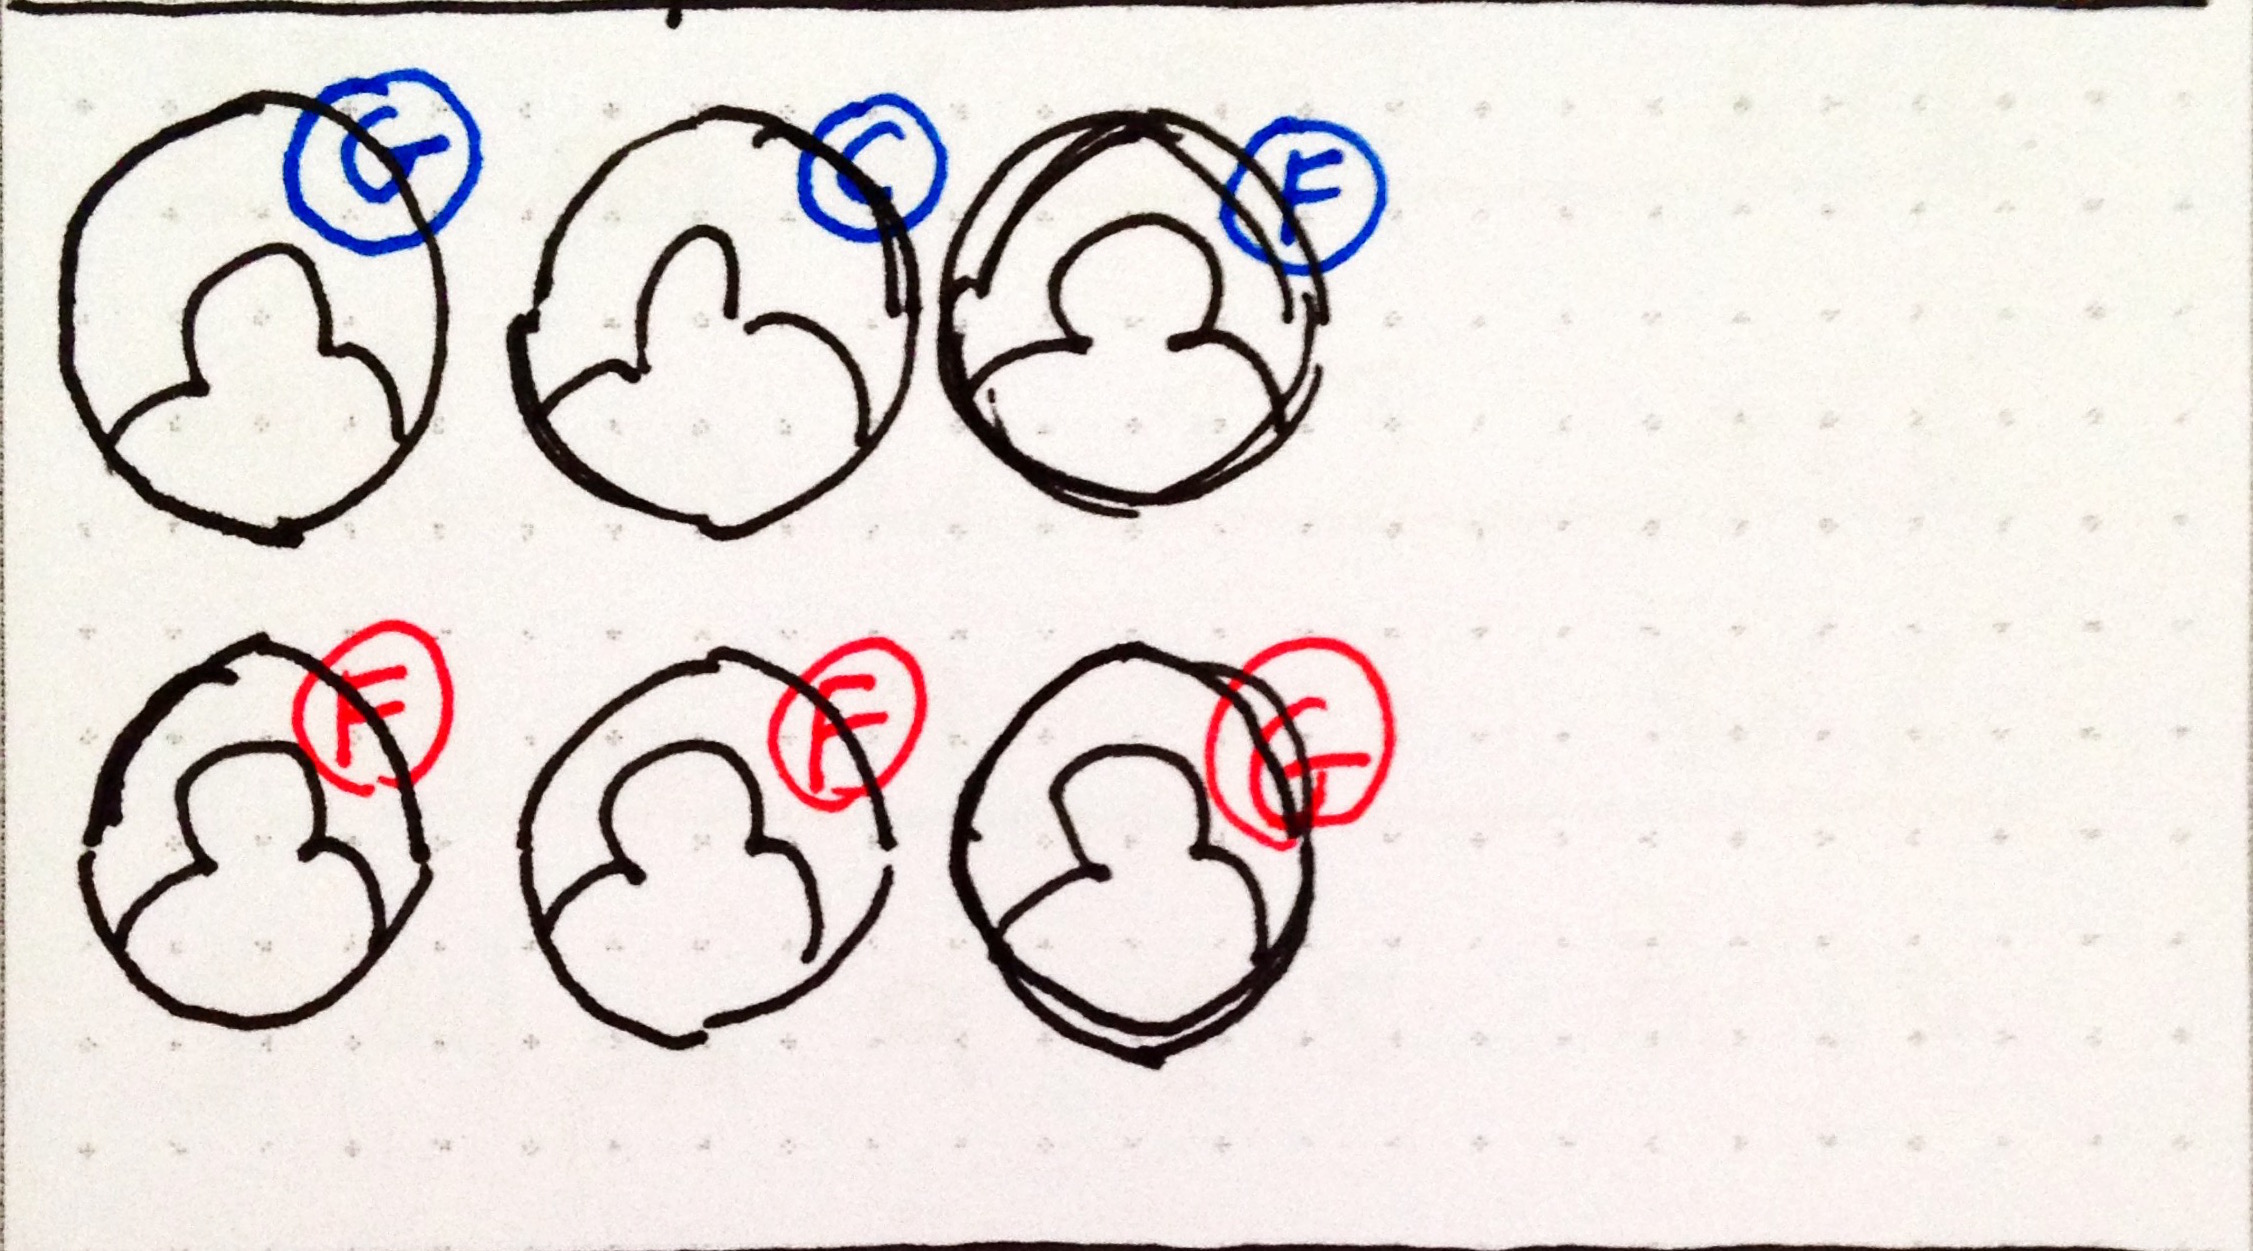 G C F
F F G